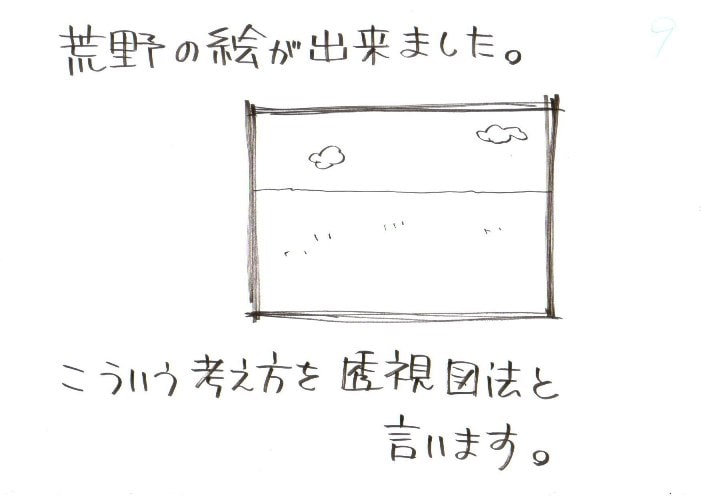 9
荒野の絵が出来ました。
こういう考え方を透視図法と
言います。